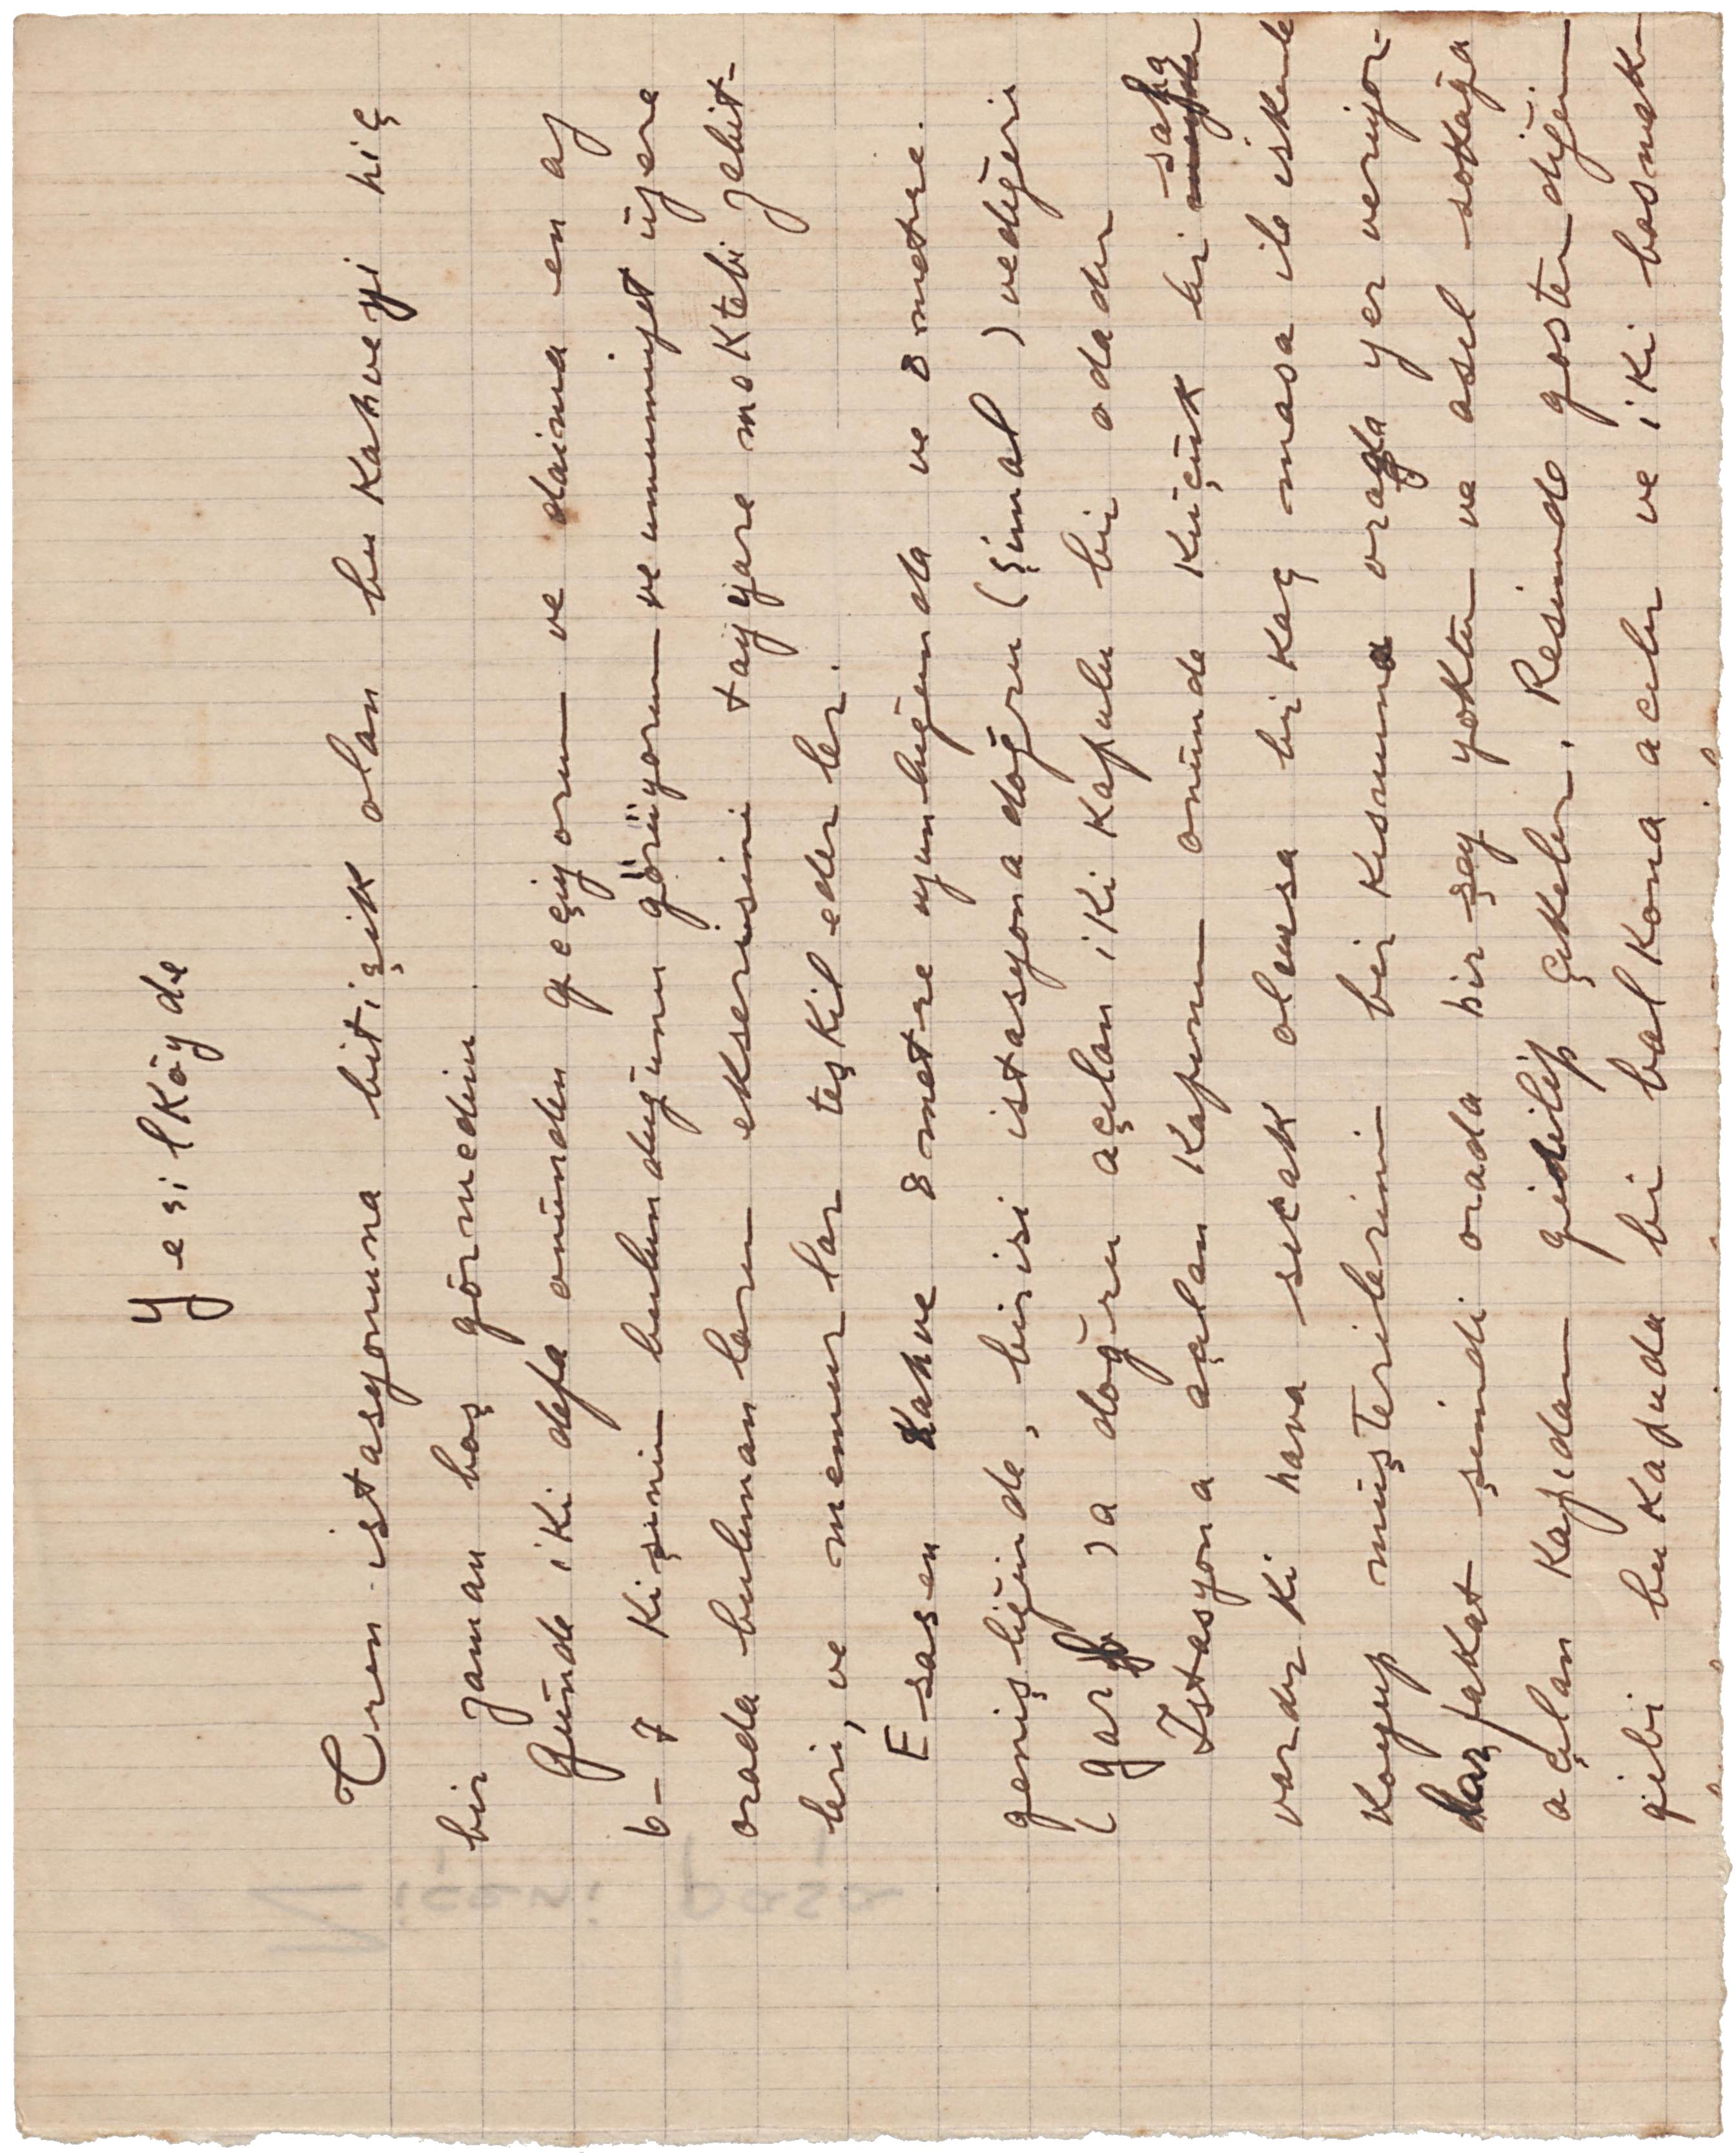 Yeşilköyde
Tren istasyonuna bitişik olan bu kahveyi hiç
bir zaman boş görmedim
Günde iki defa önünden geçiyorum ve daima en az
6-7 kişinin bulunduğunu görüyorum ve umumiyet üzere
orada bulunanların ekserisini tayyare mektebi zabit-
leri, ve memurlar teşkil ederler.
Esasen kahve 8 metre uzunluğunda ve 8 metre
genişliğinde, birisi istasyona doğru (şimal) ve diğeri
(garp) a doğru açılan iki kapulu bir odadır
İstasyona açılan kapının önünde küçük bir saha
vardır ki hava sıcak olursa bir kaç masa ile iskemle
koyup müşterilerinin bir kısmına orada yer veriyor-
lar fakat şimdi orada bir şey yoktur ve asıl sokağa
açılan kapıdan gidilip çıkılır. Resimde gösterdiğim
gibi bu kapuda bir balkona açılır ve iki basmak